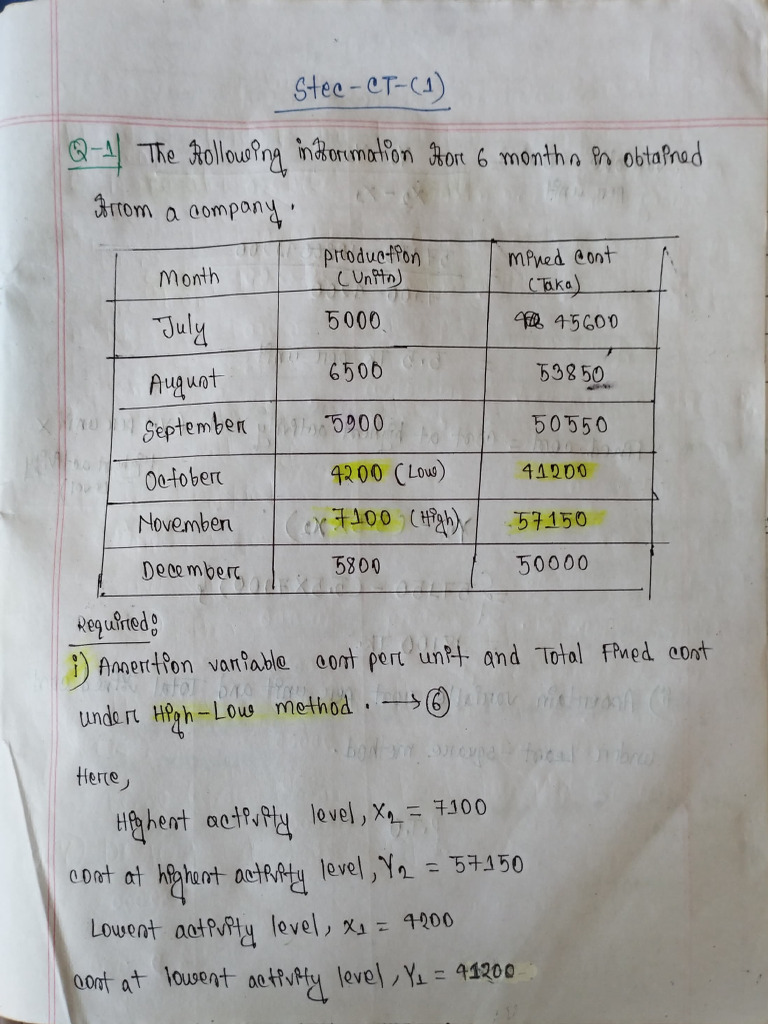 Stec-CT-(1)
Q-1 The following information for 6 months is obtained
from a company.
Month production (Units) Mixed cost (Taka)
July 5000 45600
August 6500 53850
September 5900 50550
October 4200 (Low) 41200
November 7100 (High) 57150
December 5800 50000
Required:
i) Assertion variable cost per unit and Total Fixed cost
under High-Low method. → 6
Here,
Highest activity level, X2 = 7100
cost at highest activity level, Y2 = 57150
Lowest activity level, X1 = 4200
cost at lowest activity level, Y1 = 41200